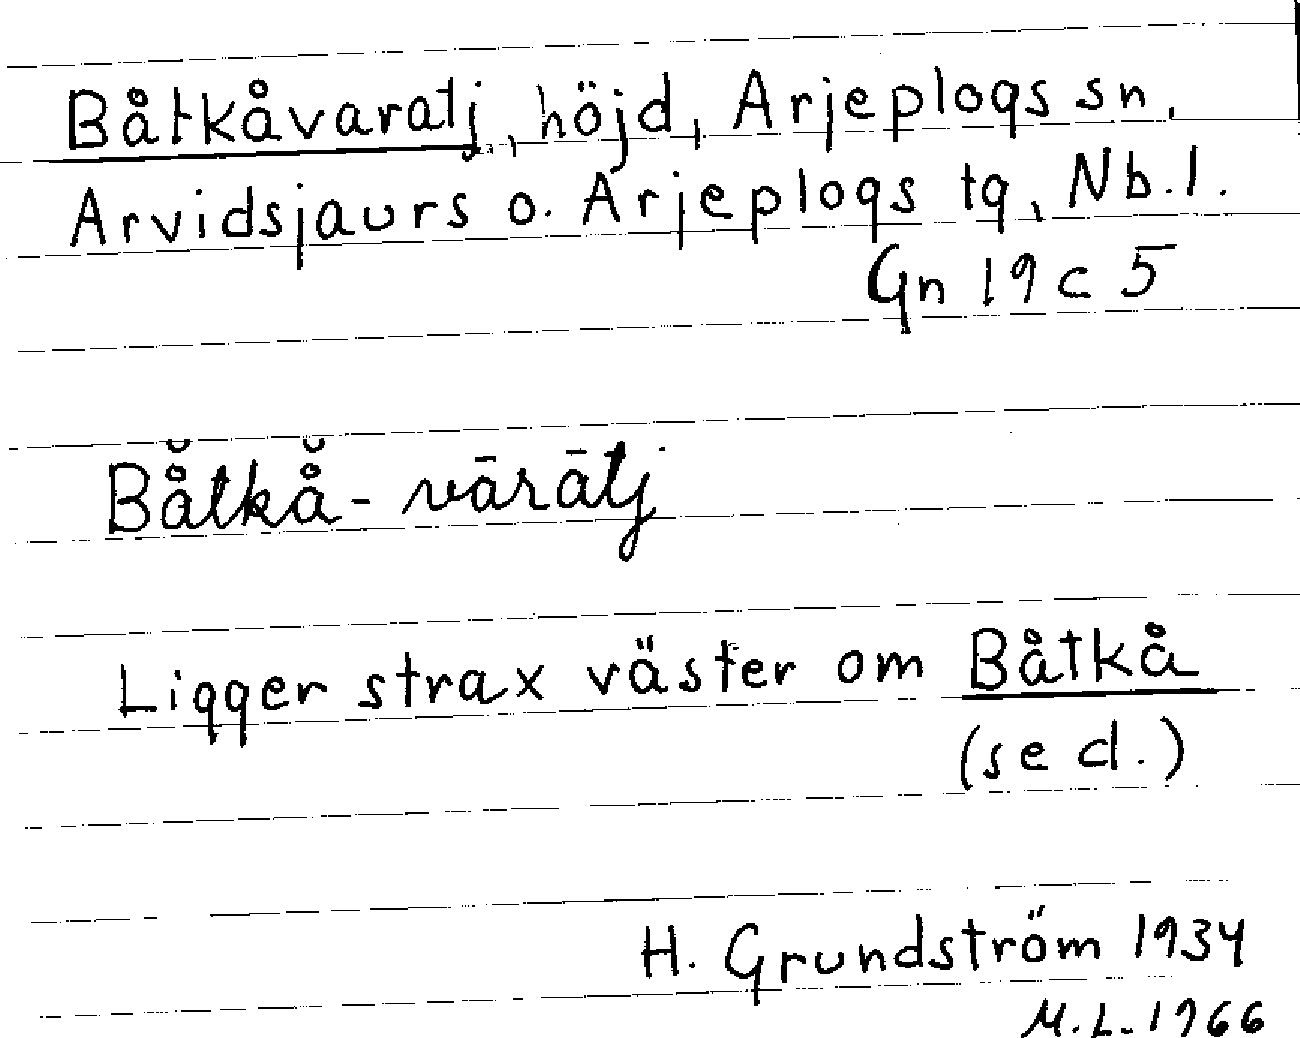 Båtkåvaratj, höjd, Arjeplogs sn,
Arvidsjaurs o. Arjeplogs tg, Nb.l.
Gn 19 c 5
Bå̆tkå̆-vārātj
Ligger strax väster om Båtkå
(se d.)
H. Grundström 1934
M.L. 1966